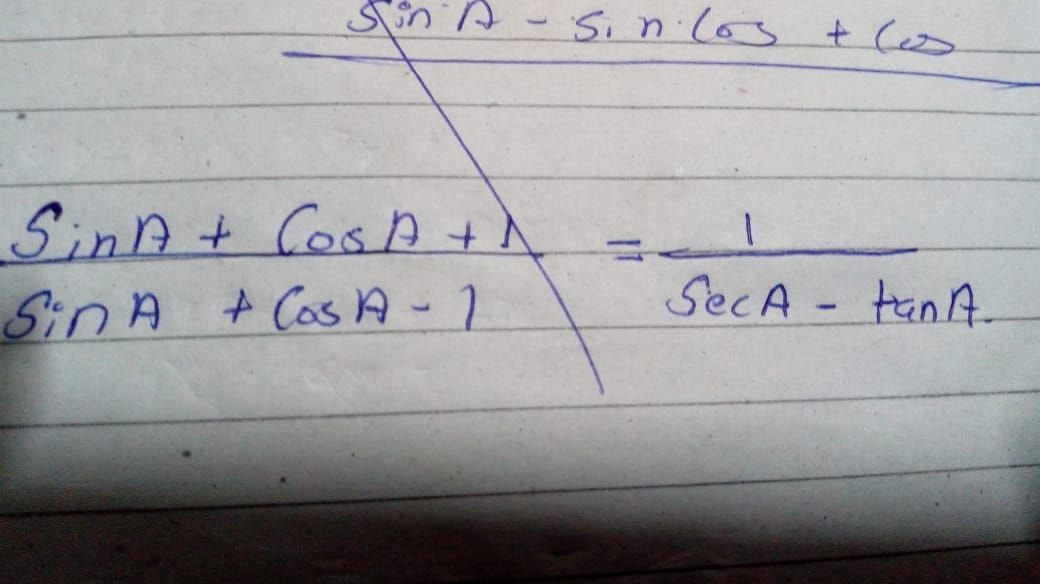 Sin A - Sin Cos + Cos
SinA + CosA + 1 = 1
SinA + CosA - 1 SecA - tanA.